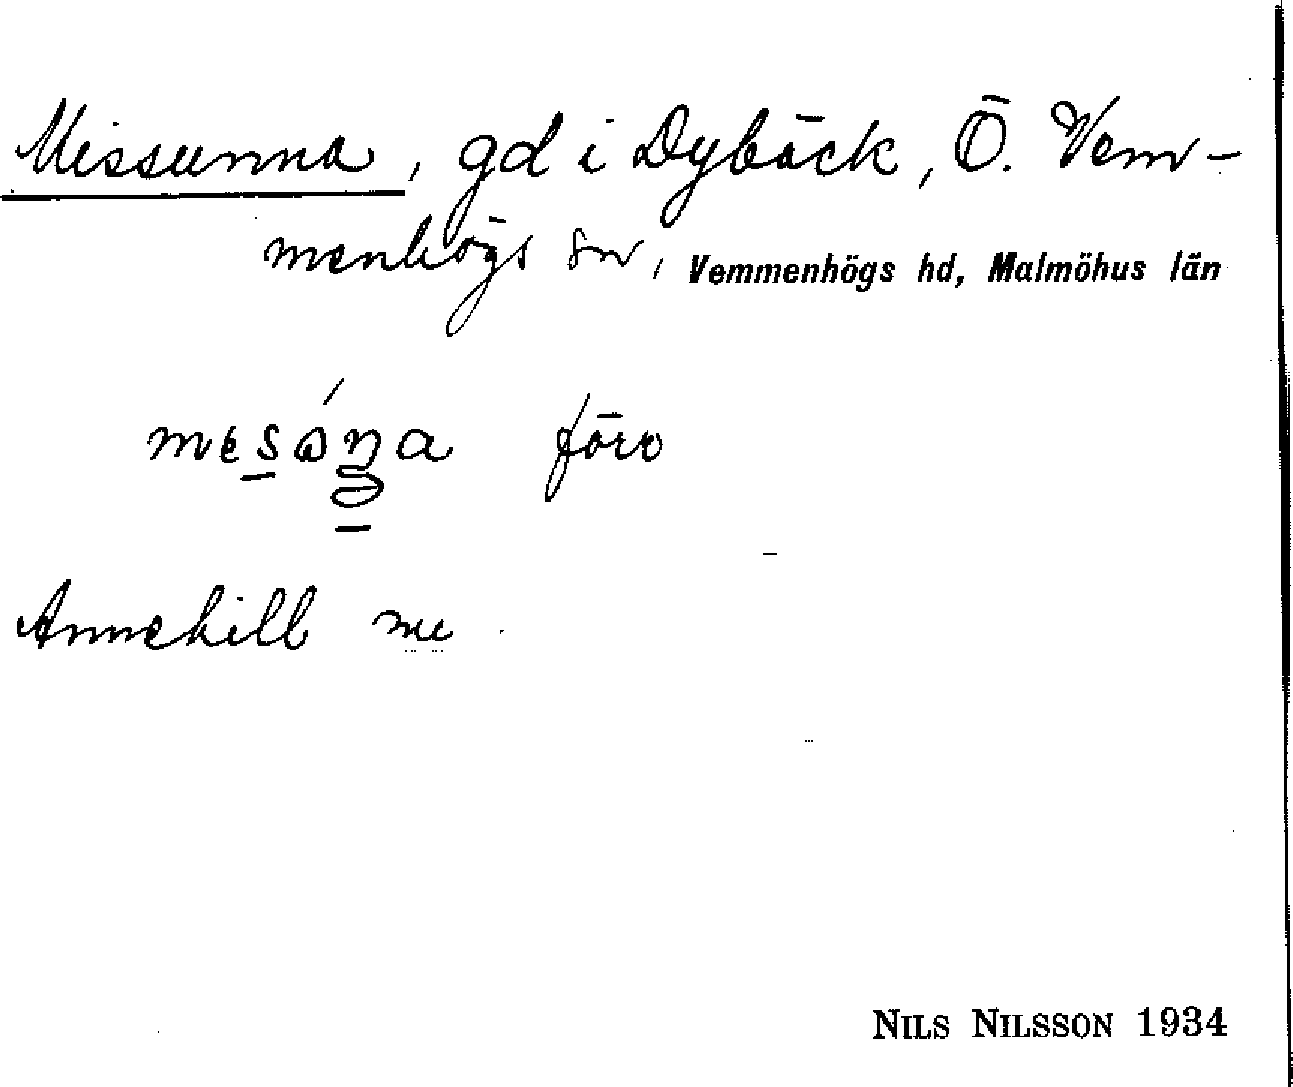 Missunna, gd i Dybäck, Ö. Vem-
menhögs sn, Vemmenhögs hd, Malmöhus län
förv
Annehill nu
NILS NILSSON 1934